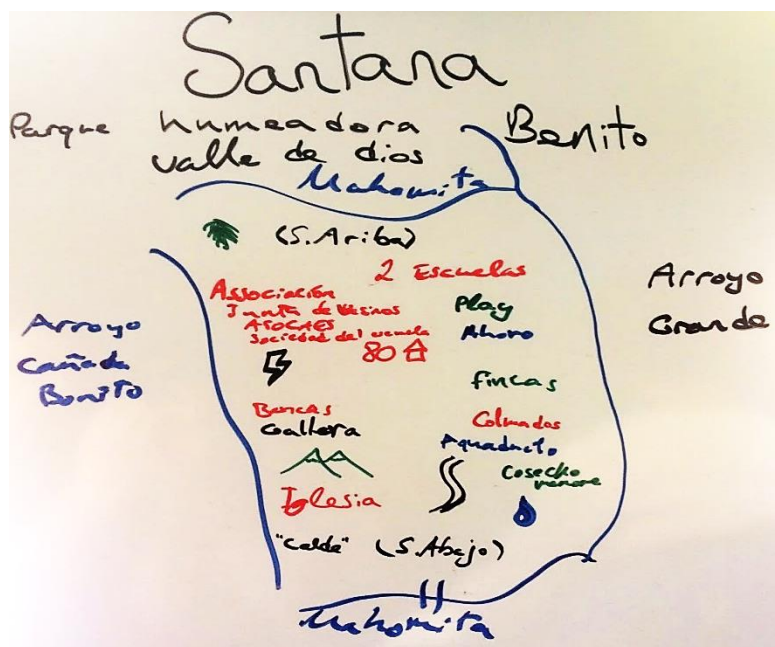 Santana
Parque humeadora
valle de dios
Benito
Mahomita
(S.Ariba)
2 Escuelas
Associación
Junta de Vesinos
ASOCAES
Sociedad del escuela
80
Play
Ahoro
Arroyo
Grande
Arroyo
Cañada
Bonito
fincas
Bancas
Colmados
Aquaducto
Cosecho
menore
Iglesia
"Calde" (S.Abajo)
Mahomita